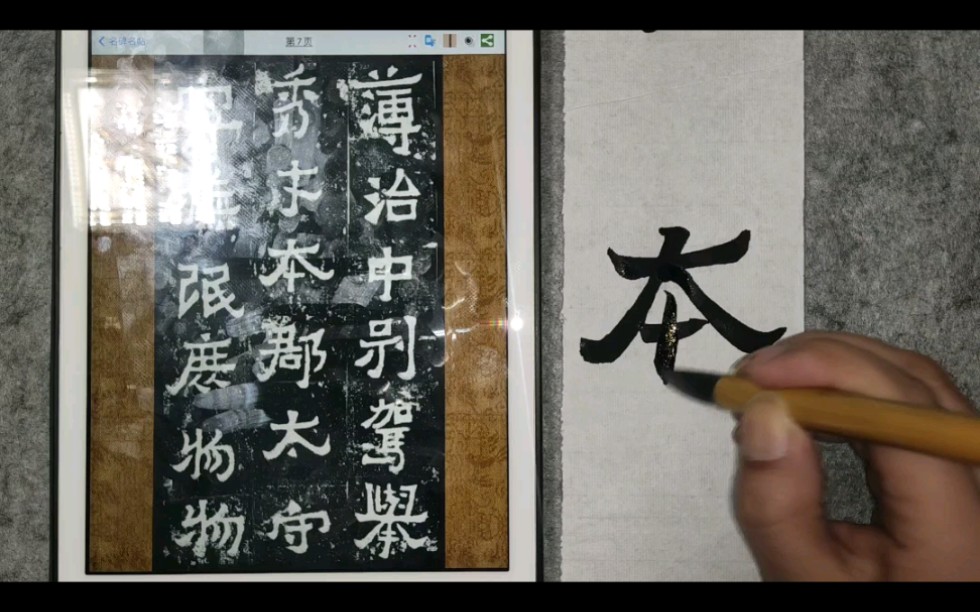 名碑名帖
第7页
薄治中别駕舉
秀才本郡太守
氓庶物物
本